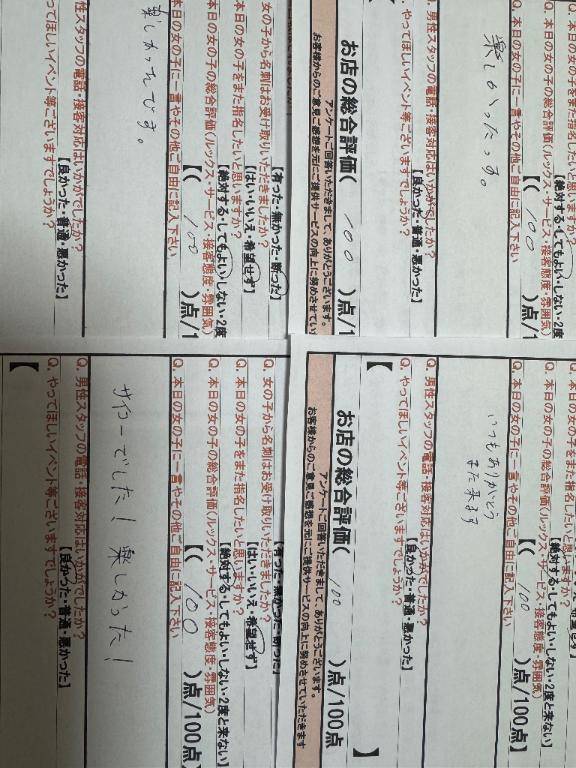 Q. 本日の女の子をまた指名したいと思いますか?
【絶対する・してもよい・しない・2度
Q. 本日の女の子の総合評価(ルックス・サービス・接客態度・雰囲気)
【( 100 )点/1
Q. 本日の女の子に一言やその他ご自由に記入下さい
楽しかったっす。
Q. 男性スタッフの電話・接客対応はいかがでしたか?
【良かった・普通・悪かった】
Q. やってほしいイベント等ございますでしょうか?
お店の総合評価( 100 )点/1
アンケートご回答いただきまして、ありがとうございます。
お客様からのご意見ご感想を元にご提供サービスの向上に努めさせてい
【有った・無かった・断った】
女の子から名刺はお受け取りいただきましたか?
【はい・いいえ・希望せず】
本日の女の子をまた指名したいと思いますか?
【絶対する・してもよい・しない・2度
本日の女の子の総合評価(ルックス・サービス・接客態度・雰囲気)
【( 100 )点/1
本日の女の子に一言やその他ご自由に記入下さい
楽しかったです。
性スタッフの電話・接客対応はいかがでしたか?
【良かった・普通・悪かった】
ってほしいイベント等ございますでしょうか?
Q. 本日の女の子をまた指名したいと思いますか?
【絶対する・してもよい・しない・2度と来ない】
Q. 本日の女の子の総合評価(ルックス・サービス・接客態度・雰囲気)
【( 100 )点/100点】
Q. 本日の女の子に一言やその他ご自由に記入下さい
いつもありがとう
また来ます
Q. 男性スタッフの電話・接客対応はいかがでしたか?
【良かった・普通・悪かった】
Q. やってほしいイベント等ございますでしょうか?
【 】
お店の総合評価( 100 )点/100点
アンケートご回答いただきまして、ありがとうございます。
お客様からのご意見ご感想を元にご提供サービスの向上に努めさせていただきます
【有った・無かった・断った】
Q. 女の子から名刺はお受け取りいただきましたか?
【はい・いいえ・希望せず】
Q. 本日の女の子をまた指名したいと思いますか?
【絶対する・してもよい・しない・2度と来ない】
Q. 本日の女の子の総合評価(ルックス・サービス・接客態度・雰囲気)
【( 100 )点/100点】
Q. 本日の女の子に一言やその他ご自由に記入下さい
サイコーでした! 楽しかった!
Q. 男性スタッフの電話・接客対応はいかがでしたか?
【良かった・普通・悪かった】
Q. やってほしいイベント等ございますでしょうか?
【